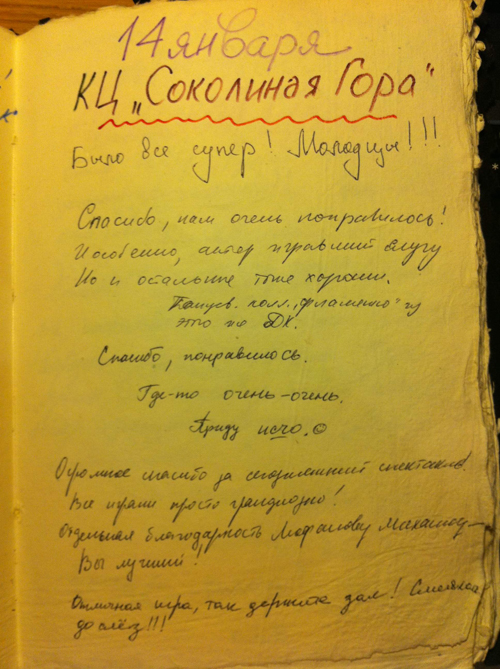 14 января
КЦ „Соколиная Гора"
Было все супер! Молодцы!!!
Спасибо, нам очень понравилось!
И особенно, актер игравший слугу
Но и остальные тоже хороши.
колл. „фламенко" из
этого же ДК.
Спасибо, понравилось.
Где-то очень-очень.
Приду исчо. ☺
Огромное спасибо за сегодняшний спектакль!
Все играли просто грандиозно!
Отдельная благодарность
Вы лучший!
Отличная игра, так держите зал! Смеялся
до слёз!!!